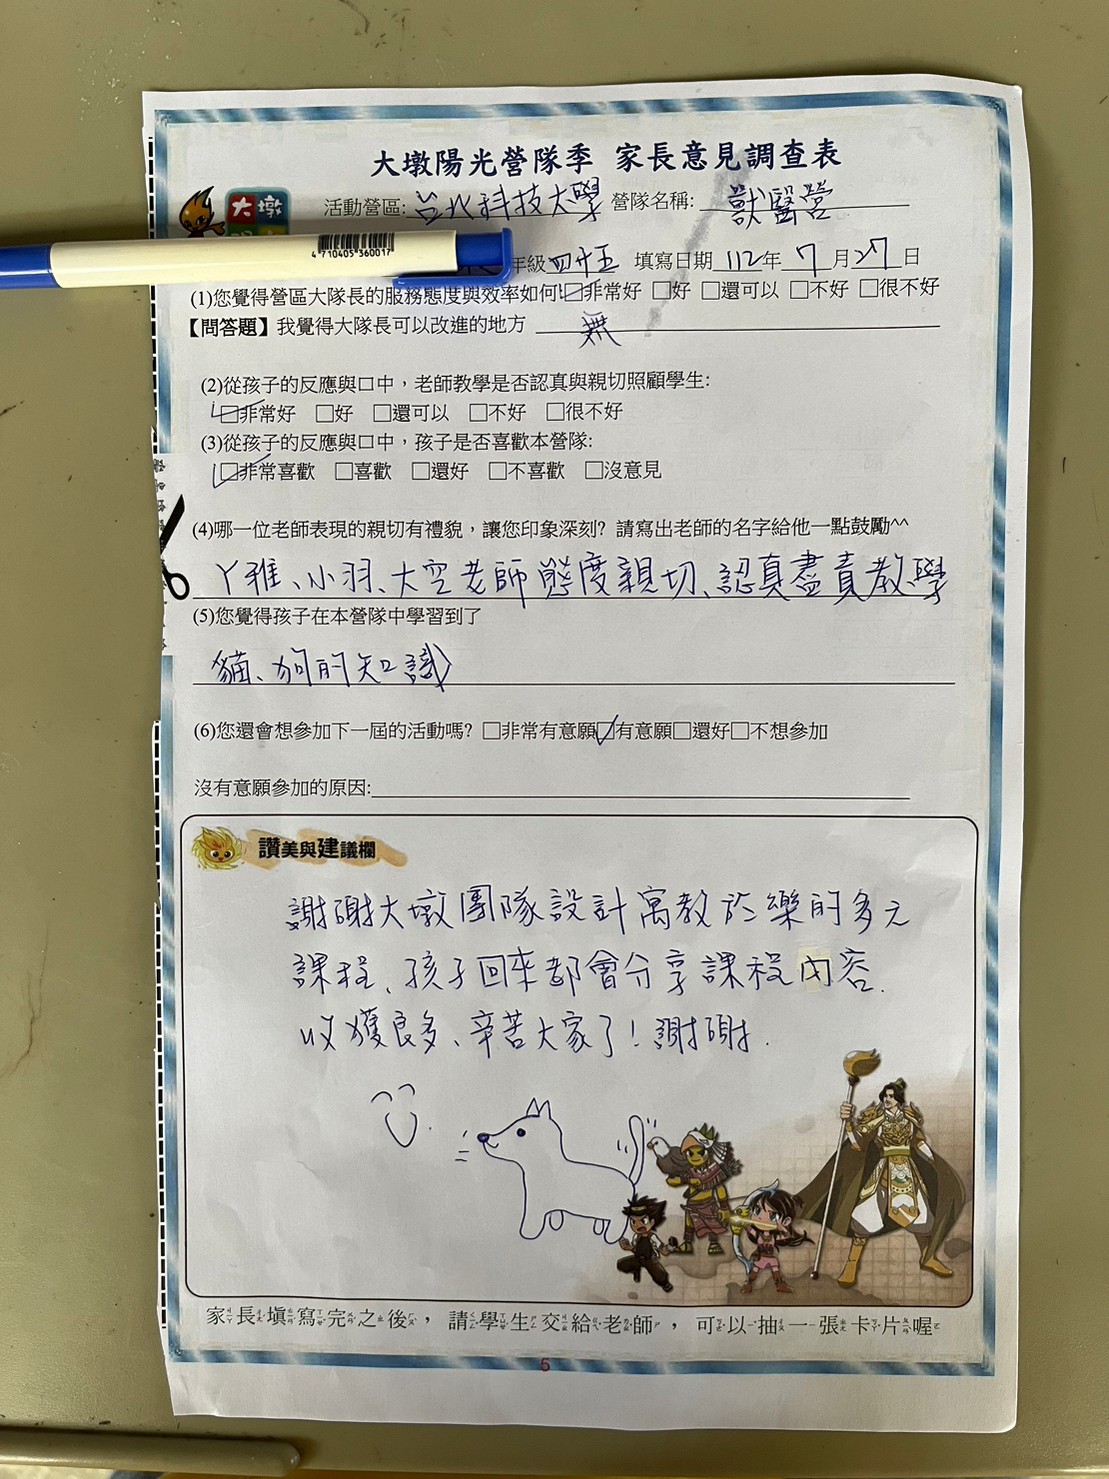 大墩陽光營隊季 家長意見調查表
大墩
活動營區: 台北科技大學 營隊名稱: 獸醫營
4710405360017
年級 四升五 填寫日期 112年 7月27日
(1)您覺得營區大隊長的服務態度與效率如何: ☑非常好 □好 □還可以 □不好 □很不好
【問答題】我覺得大隊長可以改進的地方 無
(2)從孩子的反應與口中，老師教學是否認真與親切照顧學生:
☑非常好 □好 □還可以 □不好 □很不好
(3)從孩子的反應與口中，孩子是否喜歡本營隊:
☑非常喜歡 □喜歡 □還好 □不喜歡 □沒意見
(4)哪一位老師表現的親切有禮貌，讓您印象深刻? 請寫出老師的名字給他一點鼓勵^^
丫雅、小羽、大空老師態度親切、認真盡責教學
(5)您覺得孩子在本營隊中學習到了
貓、狗的知識
(6)您還會想參加下一屆的活動嗎? □非常有意願☑有意願□還好□不想參加
沒有意願參加的原因:
讚美與建議欄
謝謝大墩團隊設計寓教於樂的多元
課程、孩子回來都會分享課程內容.
收獲良多、辛苦大家了!謝謝.
家長填寫完之後，請學生交給老師，可以抽一張卡片喔
5